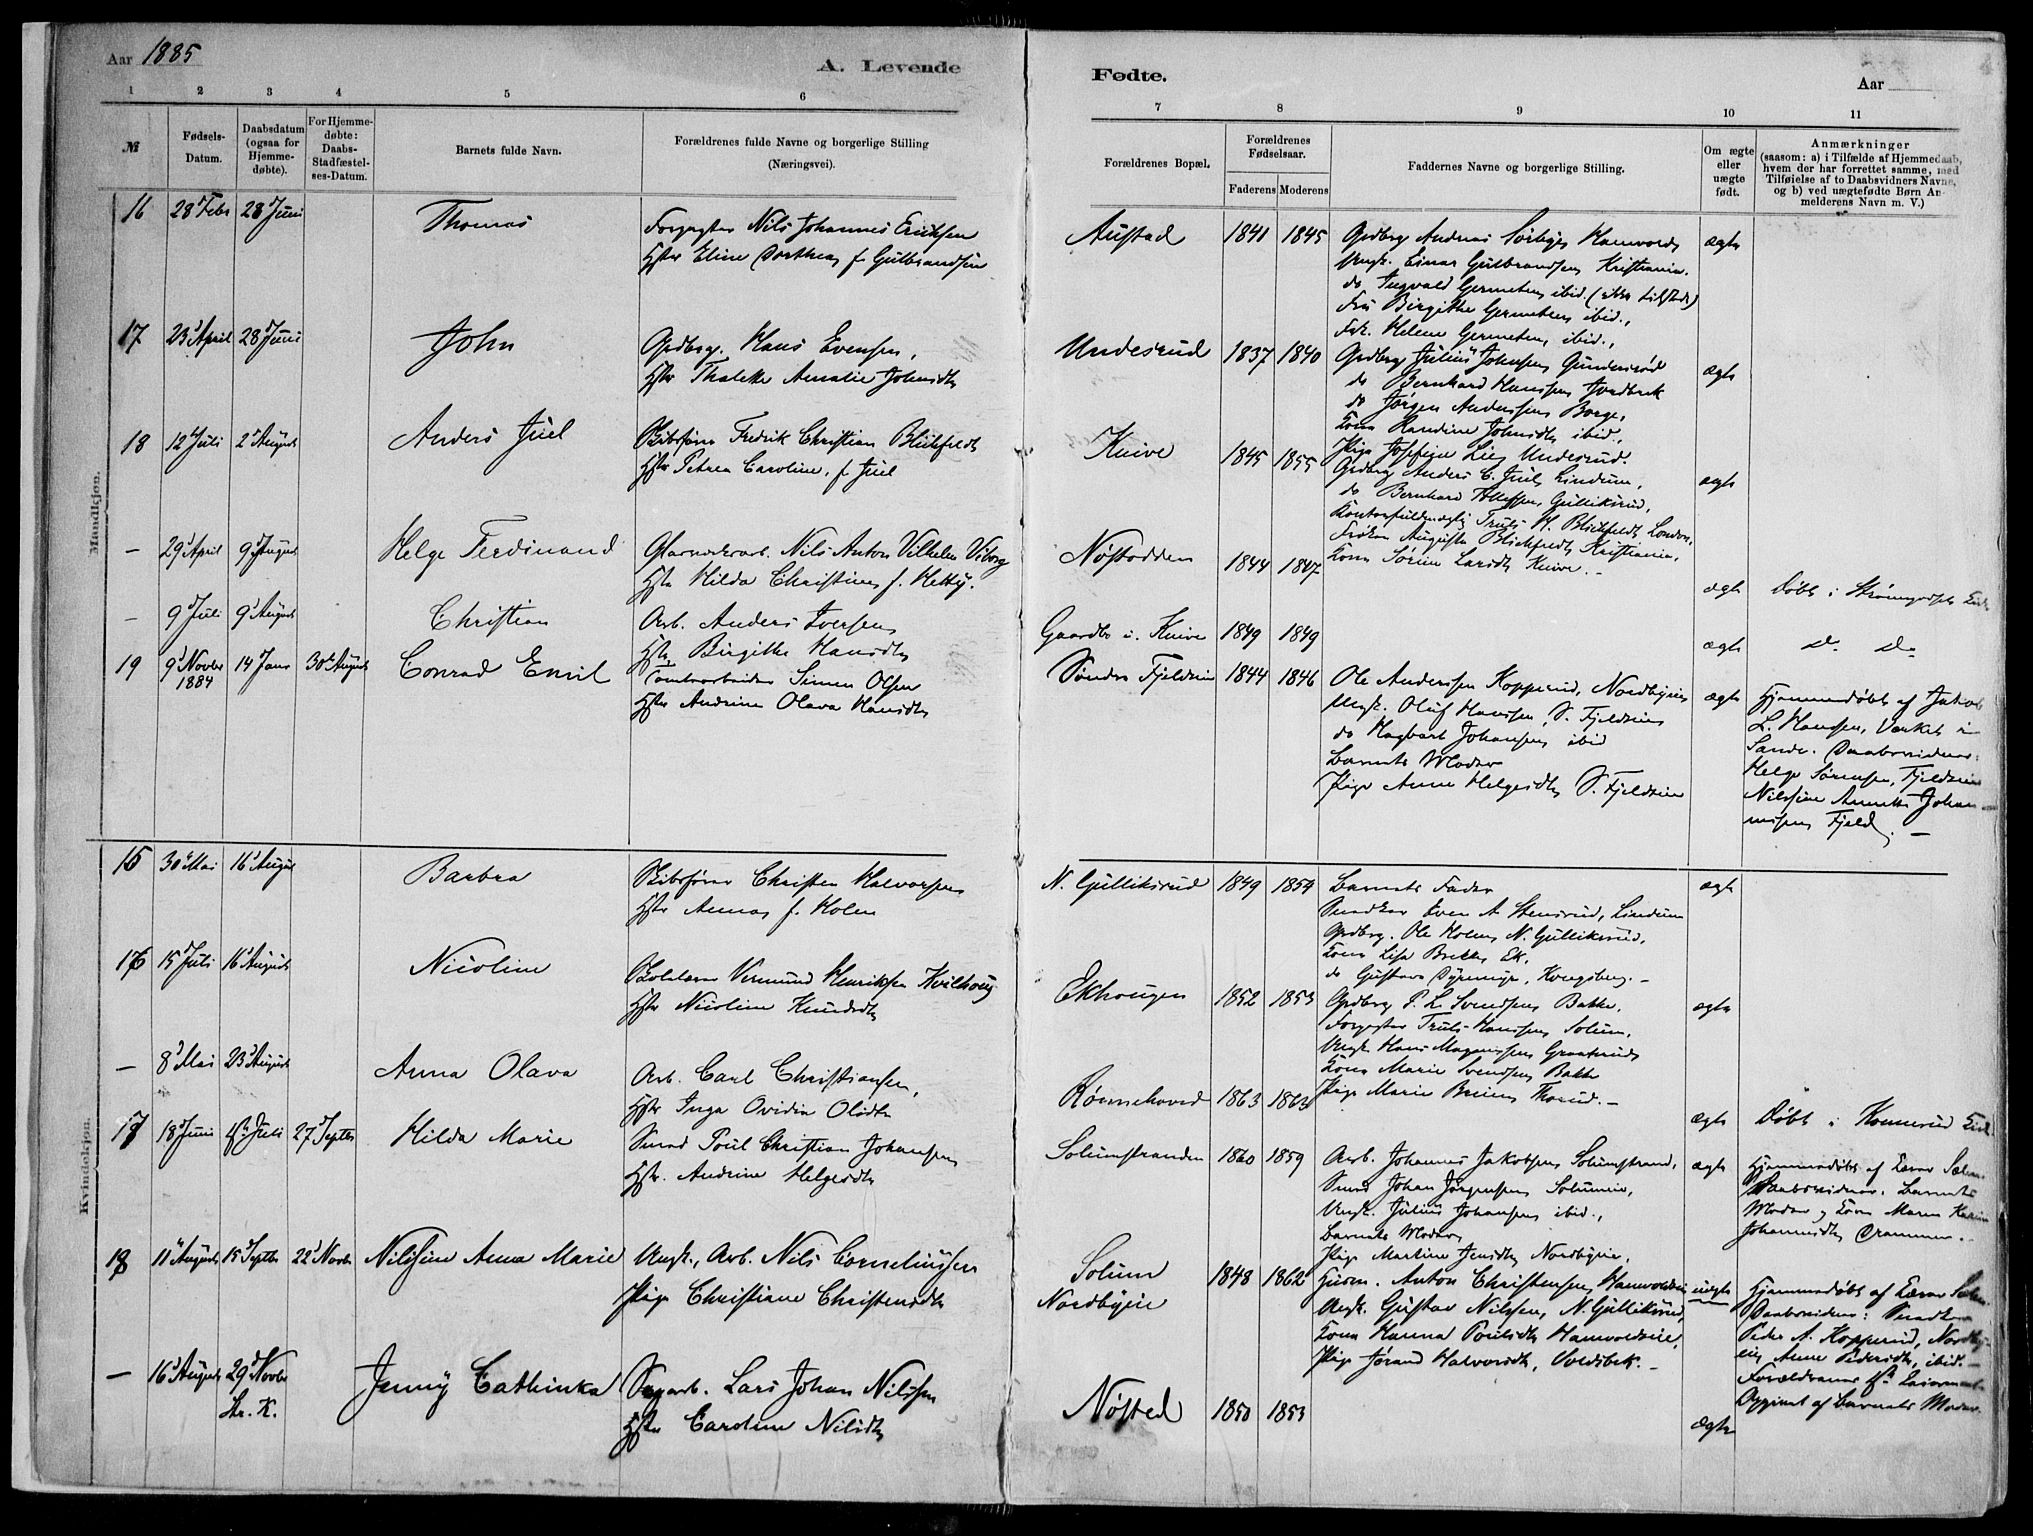 Aar 1885
A. Levende
Fødte.
Aar
1 2 3 4 5 6 7 8 9 10 11
№
Fødsels-
Datum.
Daabsdatum
(ogsaa for
Hjemme-
døbte).
For Hjemme-
døbte:
Daabs-
Stadfæstel-
ses-Datum.
Barnets fulde Navn.
Forældrenes fulde Navne og borgerlige Stilling
(Næringsvei).
Forældrenes Bopæl.
Forældrenes
Fødselsaar.
Faderens Moderens
Faddernes Navne og borgerlige Stilling.
Om ægte
eller
uægte
født.
Anmærkninger
(saasom: a) i Tilfælde af Hjemmedaab,
hvem der har forrettet samme, med
Tilføielse af to Daabsvidners Navne,
og b) ved uægtefødte Børn An-
melderens Navn m. V.)
Mandkjøn.
16 28 Febr 28 Juni Thomas
Forpagter Nils Johannes Eriksen
Hstr Eline Dorthea f. Gulbrandsen
Austad 1841 1845 ægte
Grdbrg Andreas Sørbye, Hamvold
Ungk. Einar Gulbrandsen, Kristiania.
do Ingvald Germeten ibid. (ikke tilstede)
Fru Birgithe Germeten ibid.,
Frk. Helene Germeten, ibid.,
17 23 April 28 Juni John
Grdbrg. Hans Evensen,
Hstr Thalette Amalie Johnsdtr
Undesrud 1837 1840 ægte
Grdbrg Julius Johnsen, Gundersrud
do Bernhard Hanssen Jordbrek
do Jørgen Anderssen Borge,
Kona Randine Johnsdtr ibid.,
Pige Josefine Lie, Undesrud.
18 12 Juli 2 August Anders Juel
Skibsfører Fredrik Christian Blichfeldt
Hstr Petrea Caroline, f. Juel
Knive 1845 1855 ægte
Grdbrg Anders C. Juel, Lindum,
do Bernhard Gulliksrud,
Kontorfuldmægtig Truls H. Blichfeldt, London,
Frøken Augusta Blichfeldt Kristiania,
Kona Sørine Larsdtr Knive. -
- 29 April 9 August Helge Ferdinand
Glasværksarb. Nils Anton Vilhelm Viborg
Hstr Hilda Christine, f. Hetty.
Nøstodden 1844 1847 ægte Døbt i Strømsgodset Kirke
- 9 Juli 9 August Christian
Arb. Anders Iversen
Hstr Birgithe Hansdtr
Gaardbo u. Knive 1849 1849 ægte do do
19 9 Novbr 1884 14 Jan 30 August Conrad Emil
Tomtearbeider Simen Olsen
Hstr Andrine Olava Hansdtr
Søndre Fjeldseie 1844 1846 ægte
Ole Anderssen Kopperud, Nordbyeie
Ungk. Oluf Hanssen, S. Fjeldseie
do Hagbart Johansen, ibid
Barnets Moder
Pige Anne Helgesdtr S. Fjeldseie
Hjemmedøbt af Jakob
L. Hanssen, Værket i
Sande. Daabsvidner:
Helge Sørensen, Fjeldseie
Nilsine Annette Johan-
nesen Fjeld. -
Kvindekjøn.
15 30 Mai 16 August Barbra
Skibsfører Christen Halvorsen
Hstr Anna, f. Holm
N. Gulliksrud 1849 1854 ægte
Barnets Fader
Snedker Even A. Stensrud, Lindum
Grdbrg. Ole Holm, N. Gulliksrud,
Kona Lisa Brekke, Ek.
do Gustava Dyrmyr, Kongsberg. -
16 15 Juli 16 August Nicoline
Skolelærer Vermund Henriksen Kvilhaug
Hstr Nicoline Knudsdtr
Ekhougen 1852 1853 ægte
Grdbrg P. L. Svendsen, Bakke.
Forpagter Truls Hanssen Solum,
Ungk. Hans Magnussen
Kona Marie Svendsen Bakke
Pige Marie Thorud. -
- 8 Mai 23 August Anna Olava
Arb. Carl Christiansen,
Hstr Inga Ovidia Olsdtr
Rønnehoved 1863 1863 ægte Døbt i Konnerud Kirke
17 18 Juni Juli 27 Septbr Hilda Marie
Smed Poul Christian Johansen
Hstr. Andrine Helgesdtr
Solumstranden 1860 1859 ægte
Arb. Johannes Jakobsen, Solumstrand,
Smed Johan Jørgensen Solumeie,
Ungk. Julius Johansen, ibid.,
Barnets Moder
Pige Martine Jensdtr Nordbyeie.
Hjemmedøbt af Lærer
Daabsvidner: Barnets
Moder og Kona Maren
Johannesdtr Drammen. -
18 11 August 15 Septbr 22 Novbr Nilsine Anna Marie
Ungk., Arb. Nils Corneliussen
Pige Christiane Christensdtr
Solum
Nordbyeie
1848 1862 uægte
Husm. Anton Christensen, Hamvoldeie
Ungk. Gustav Nilssen, N. Gulliksrud,
Kona Hanna Poulsdtr Hamvoldseie,
Pige Jørand Halvorsdtr, Voldbek. -
Hjemmedøbt af Lærer
Daabsvidner: Snedker
Peder A. Kopperud, Nordby-
eie, Anne Pedersdtr, ibid. -
Forældrenes
Opgivet af Barnets Moder
- 16 August 29 Novbr
Str. K.
Jenny Cathinka
Sagarb. Lars Johan Nilssen
Hstr Caroline Nilsdtr
Nøsted 1850 1853 ægte